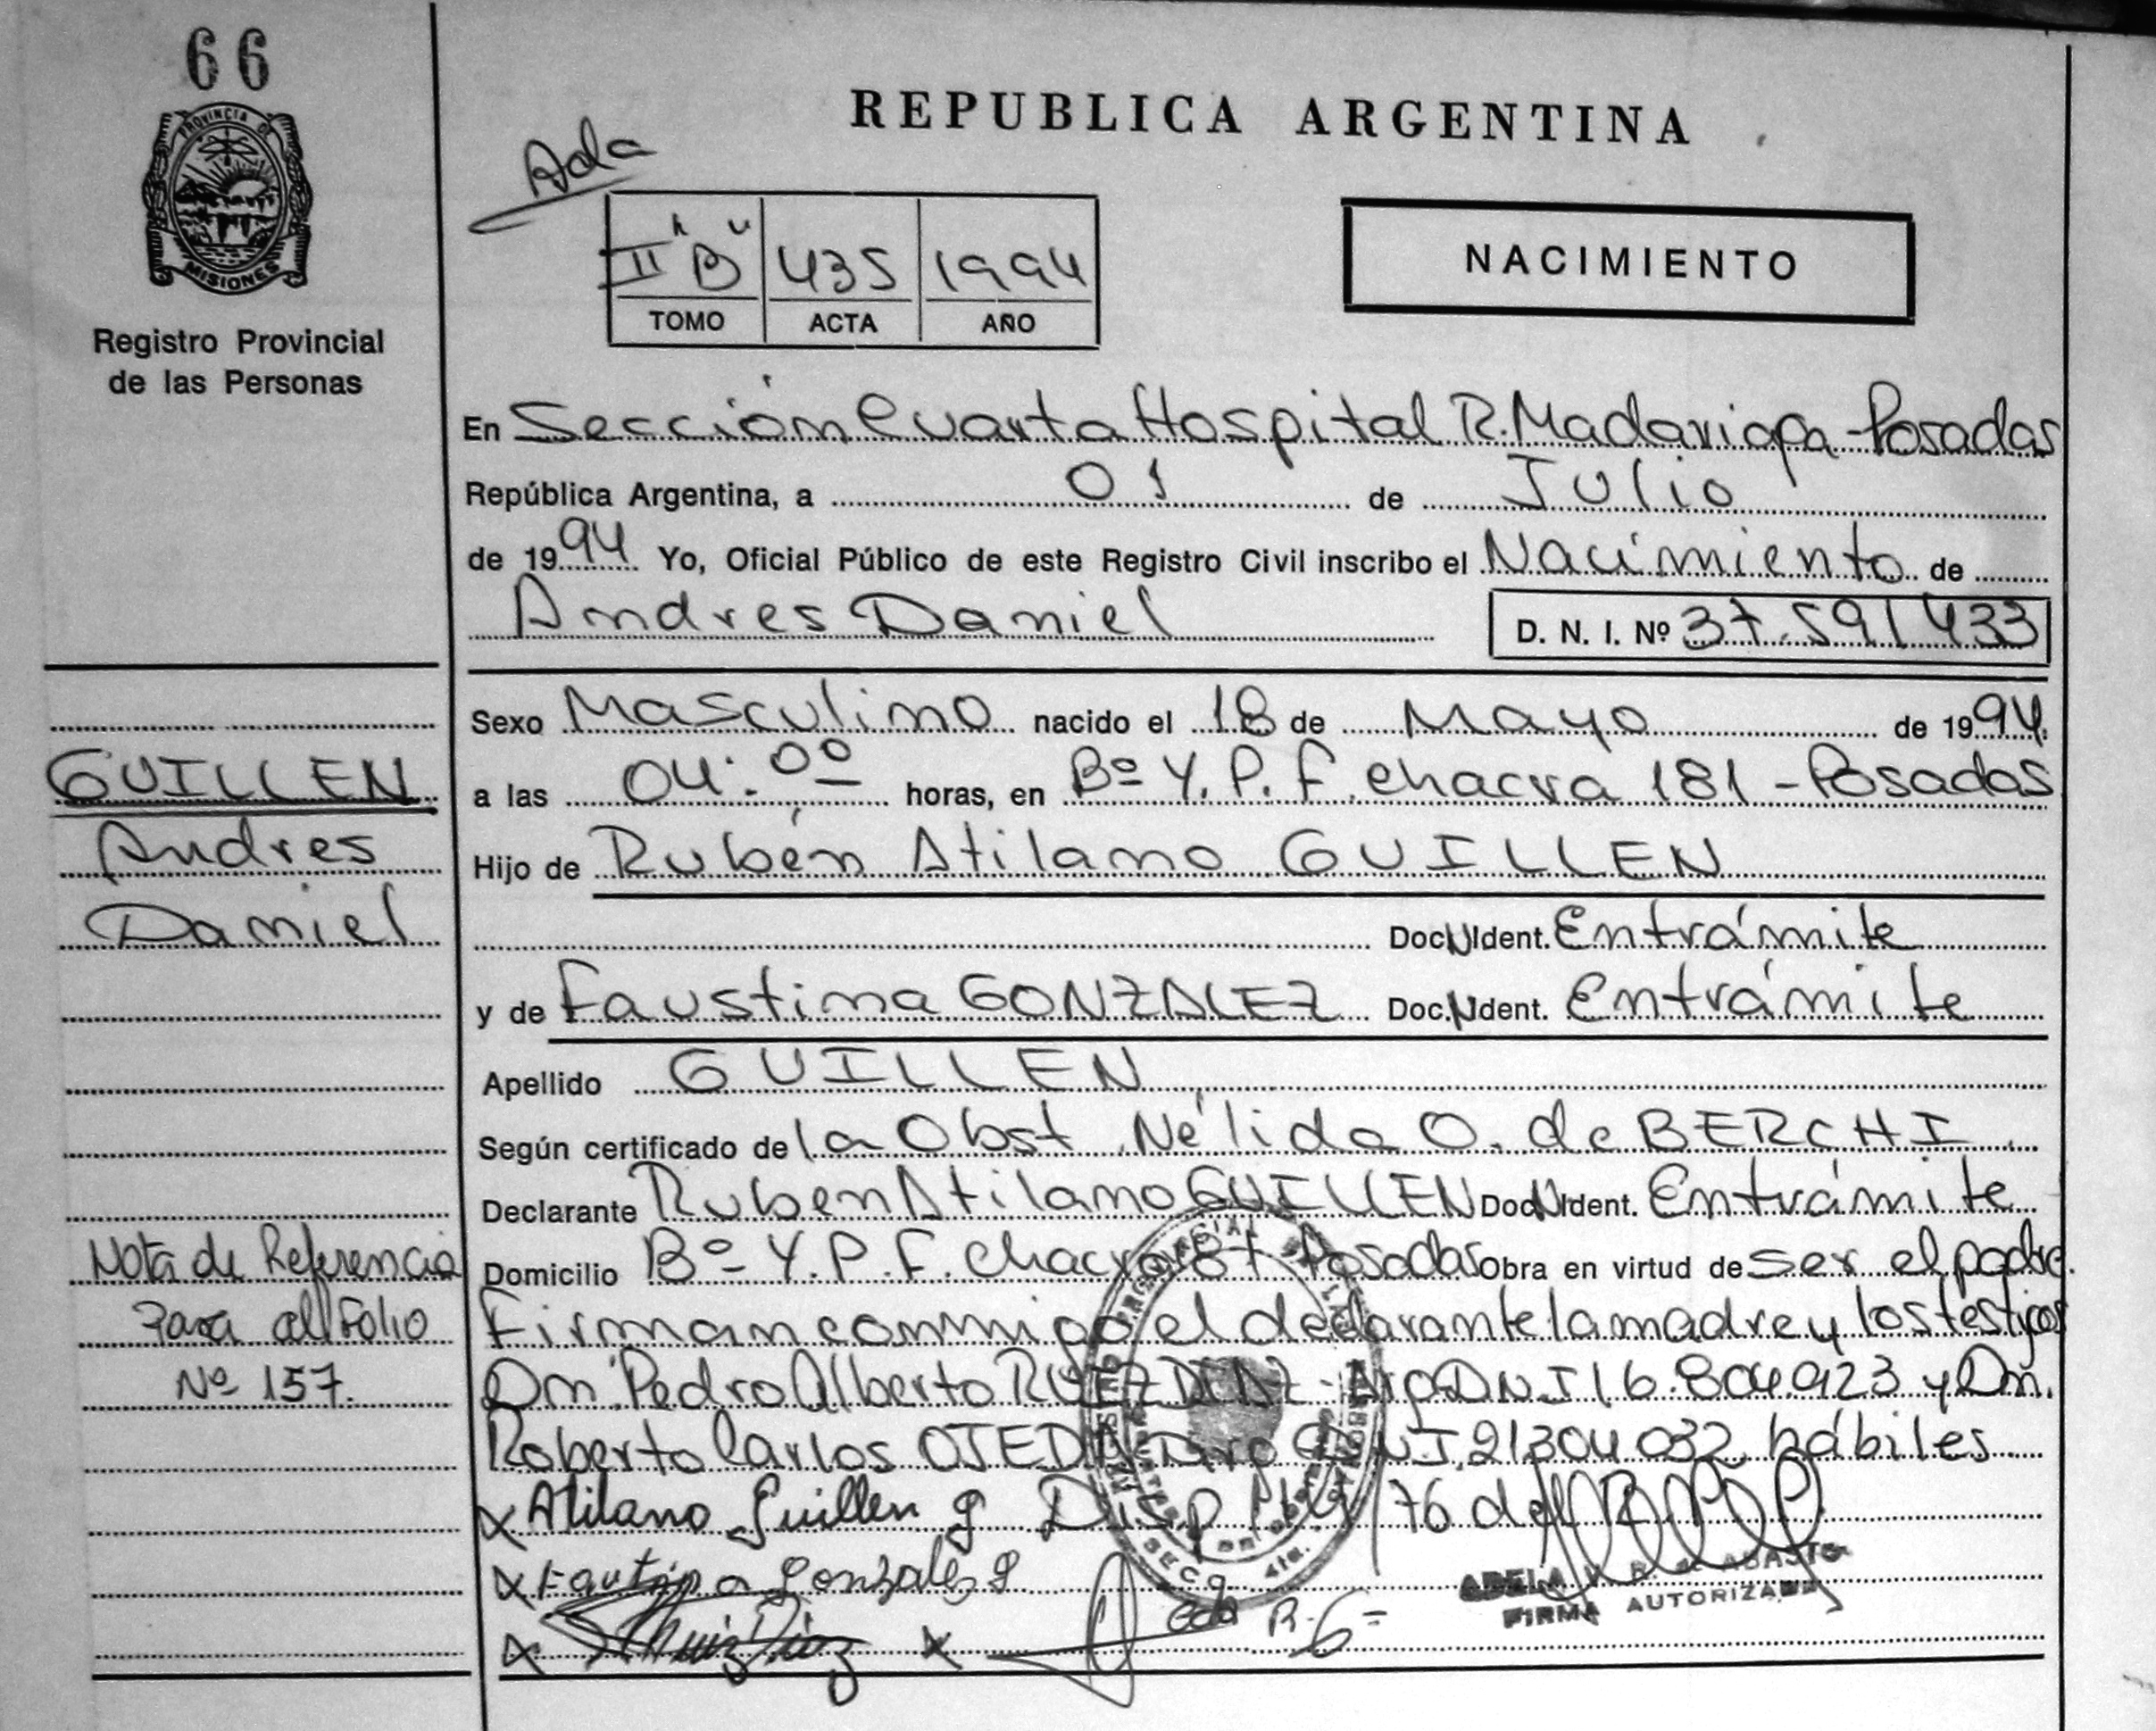 66
PROVINCIA DE
MISIONES
Registro Provincial
de las Personas
REPUBLICA ARGENTINA
Ada
II "B" 435 1994
TOMO ACTA AÑO
NACIMIENTO
En Sección Cuarta Hospital R. Madariaga - Posadas
República Argentina, a 01 de Julio
de 1994 Yo, Oficial Público de este Registro Civil inscribo el Nacimiento de
Andres Daniel D. N. I. Nº 37.591433
Sexo Masculino nacido el 18 de Mayo de 1994.
a las 04:00 horas, en Bº Y.P.F. chacra 181 - Posadas
Hijo de Rubén Atilano GUILLEN
Doc. N Ident. Entrámite
y de Faustina GONZALEZ Doc. N Ident. Entrámite
Apellido GUILLEN
Según certificado de la Obst. Nélida O. de BERCHI
Declarante Ruben Atilano GUILLEN Doc. N Ident. Entrámite
Domicilio Bº Y.P.F. Chacra Posadas Obra en virtud de ser el padre.
Firman conmigo el declarante la madre y los testigos
Dn. Pedro Alberto RUIZ DIAZ - Arg. D.N.I 16.804.923 y Dn.
Roberto Carlos OJEDA Arg D.N.I. 21304032 hábiles
x Atilano Guillen g Disp 76 del R.P.P
x Faustina Gonzalez g
x Ruiz Diaz x
ADELA V. R. de
FIRMA AUTORIZADA
GUILLEN
Andres
Daniel
Nota de Referencia
Pasa al folio
Nº 157.